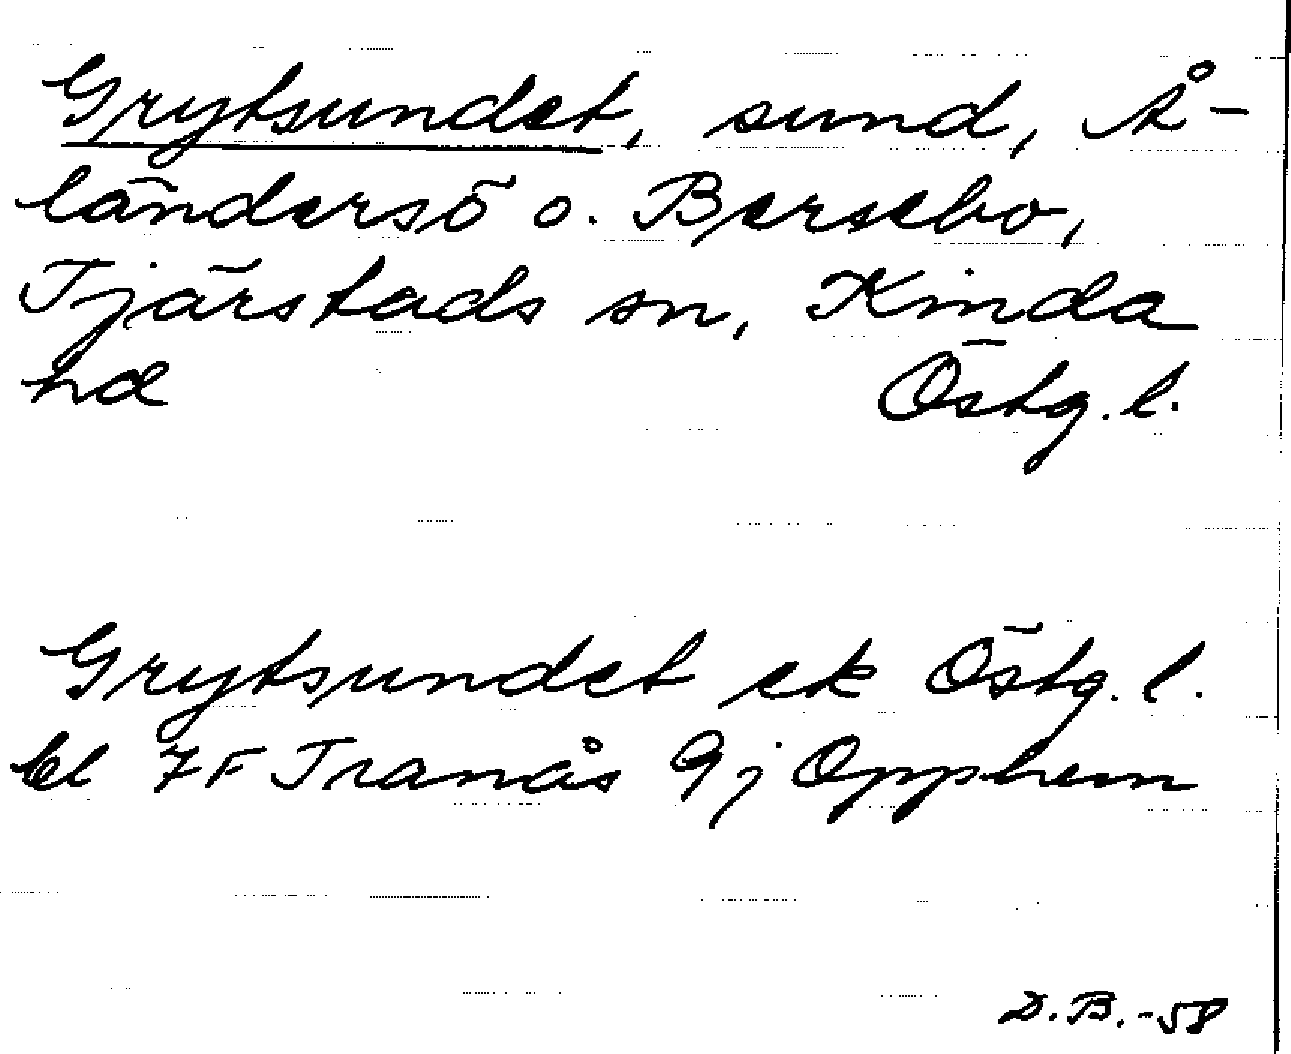 Grytsundet, sund, Å-
ländersö o. Bersebo,
Tjärstads sn, Kinda
hd Östg. l.
Grytsundet ek Östg. l.
bl 7F Tranås 9j Opphem
D.B.-58